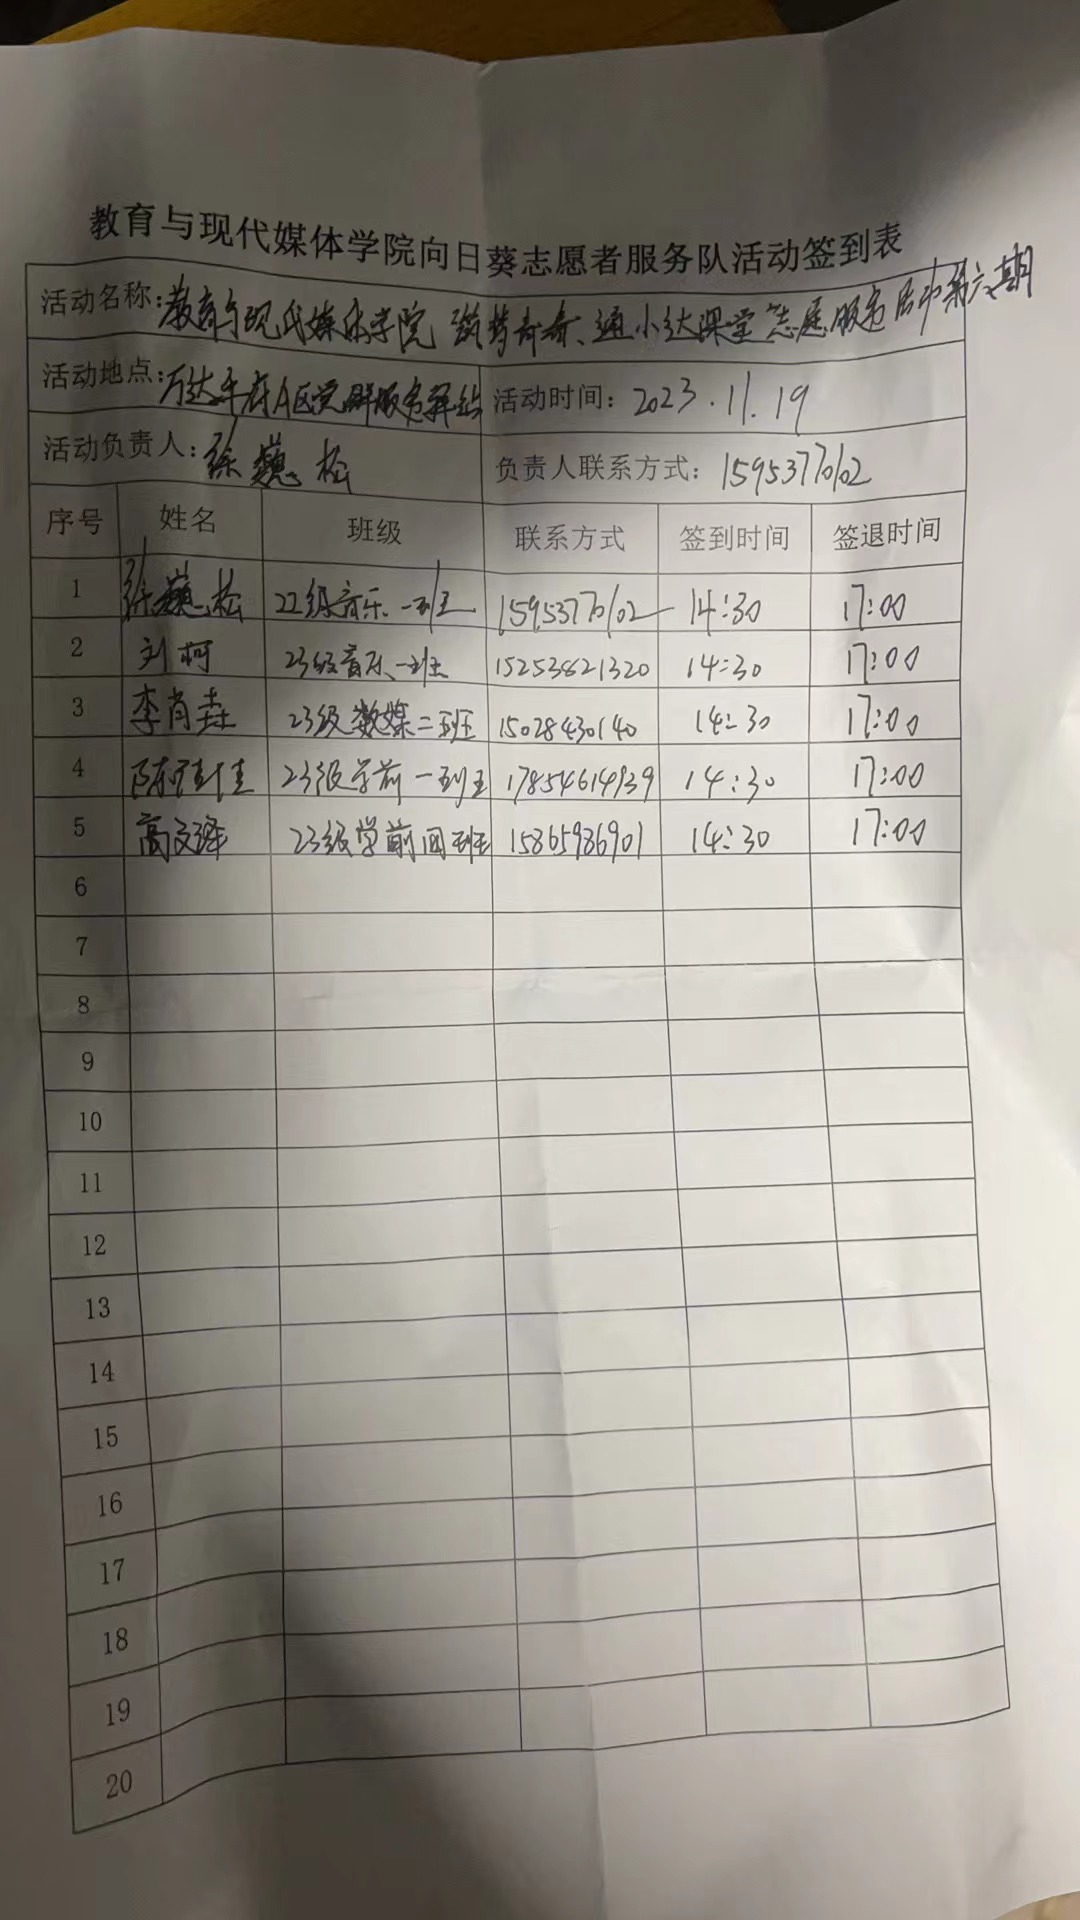 教育与现代媒体学院向日葵志愿者服务队活动签到表
活动名称:教育与现代媒体学院 筑梦青春、通小达课堂志愿服务活动第六期
活动地点:万达华府A区党群服务驿站 活动时间:2023.11.19
活动负责人:徐巍松 负责人联系方式:15953770102
序号 姓名 班级 联系方式 签到时间 签退时间
1 徐巍松 22级音乐一班 15953770102 14:30 17:00
2 刘柯 23级音乐一班 15253821320 14:30 17:00
3 李肖垚 23级数媒二班 15028430140 14:30 17:00
4 陈佳佳 23级学前一班 17854614939 14:30 17:00
5 高文泽 23级学前四班 15865986901 14:30 17:00
6
7
8
9
10
11
12
13
14
15
16
17
18
19
20